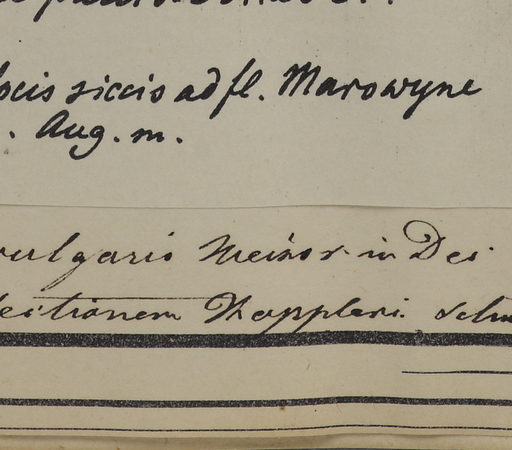 locis siccis ad fl. Marowyne
. Aug. m.
vulgaris Meisor in De
lectionem Kappleri.